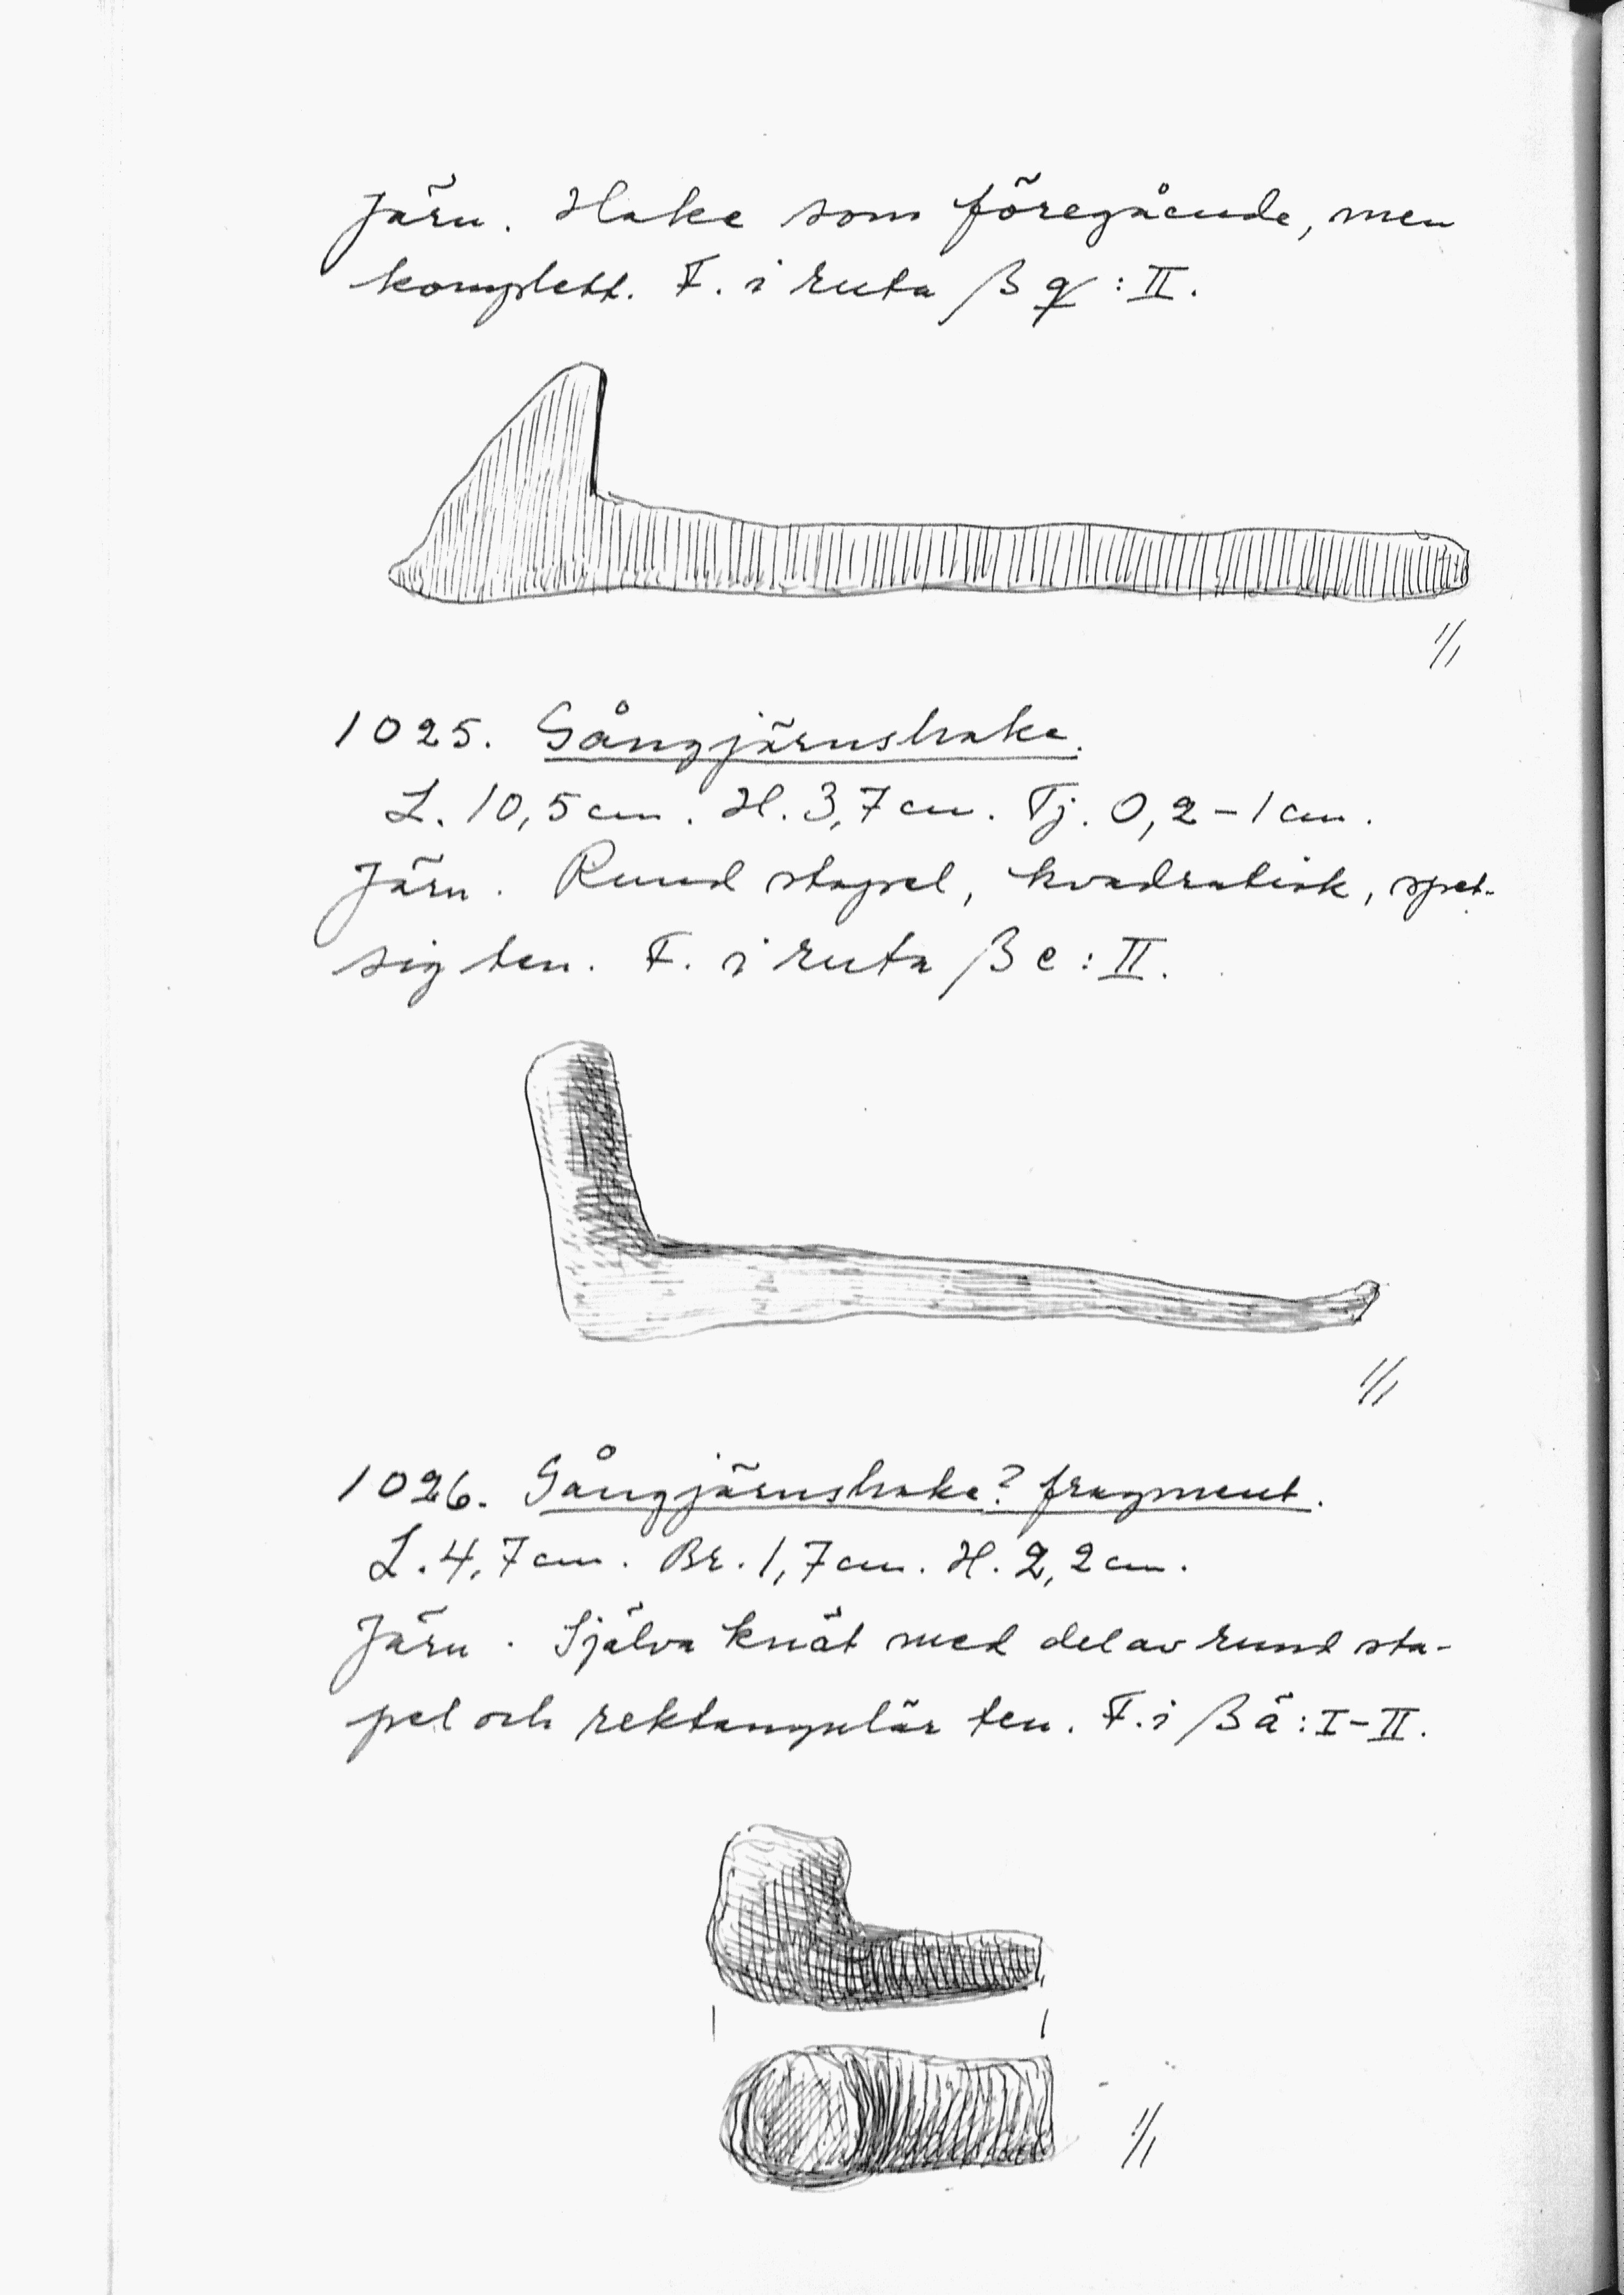 Järn. Hake som föregående, men
komplett. F. i ruta β q : II.
1/1
1025. Gångjärnshake.
L. 10,5 cm. H. 3,7 cm. Tj. 0,2 – 1 cm.
Järn. Rund stapel, kvadratisk, spet-
sig ten. F. i ruta β e : II.
1/1
1026. Gångjärnshake? fragment.
L. 4,7 cm. Br. 1,7 cm. H. 2,2 cm.
Järn. Själva knät med del av rund sta-
pel och rektangulär ten. F. i β ä : I – II.
1/1